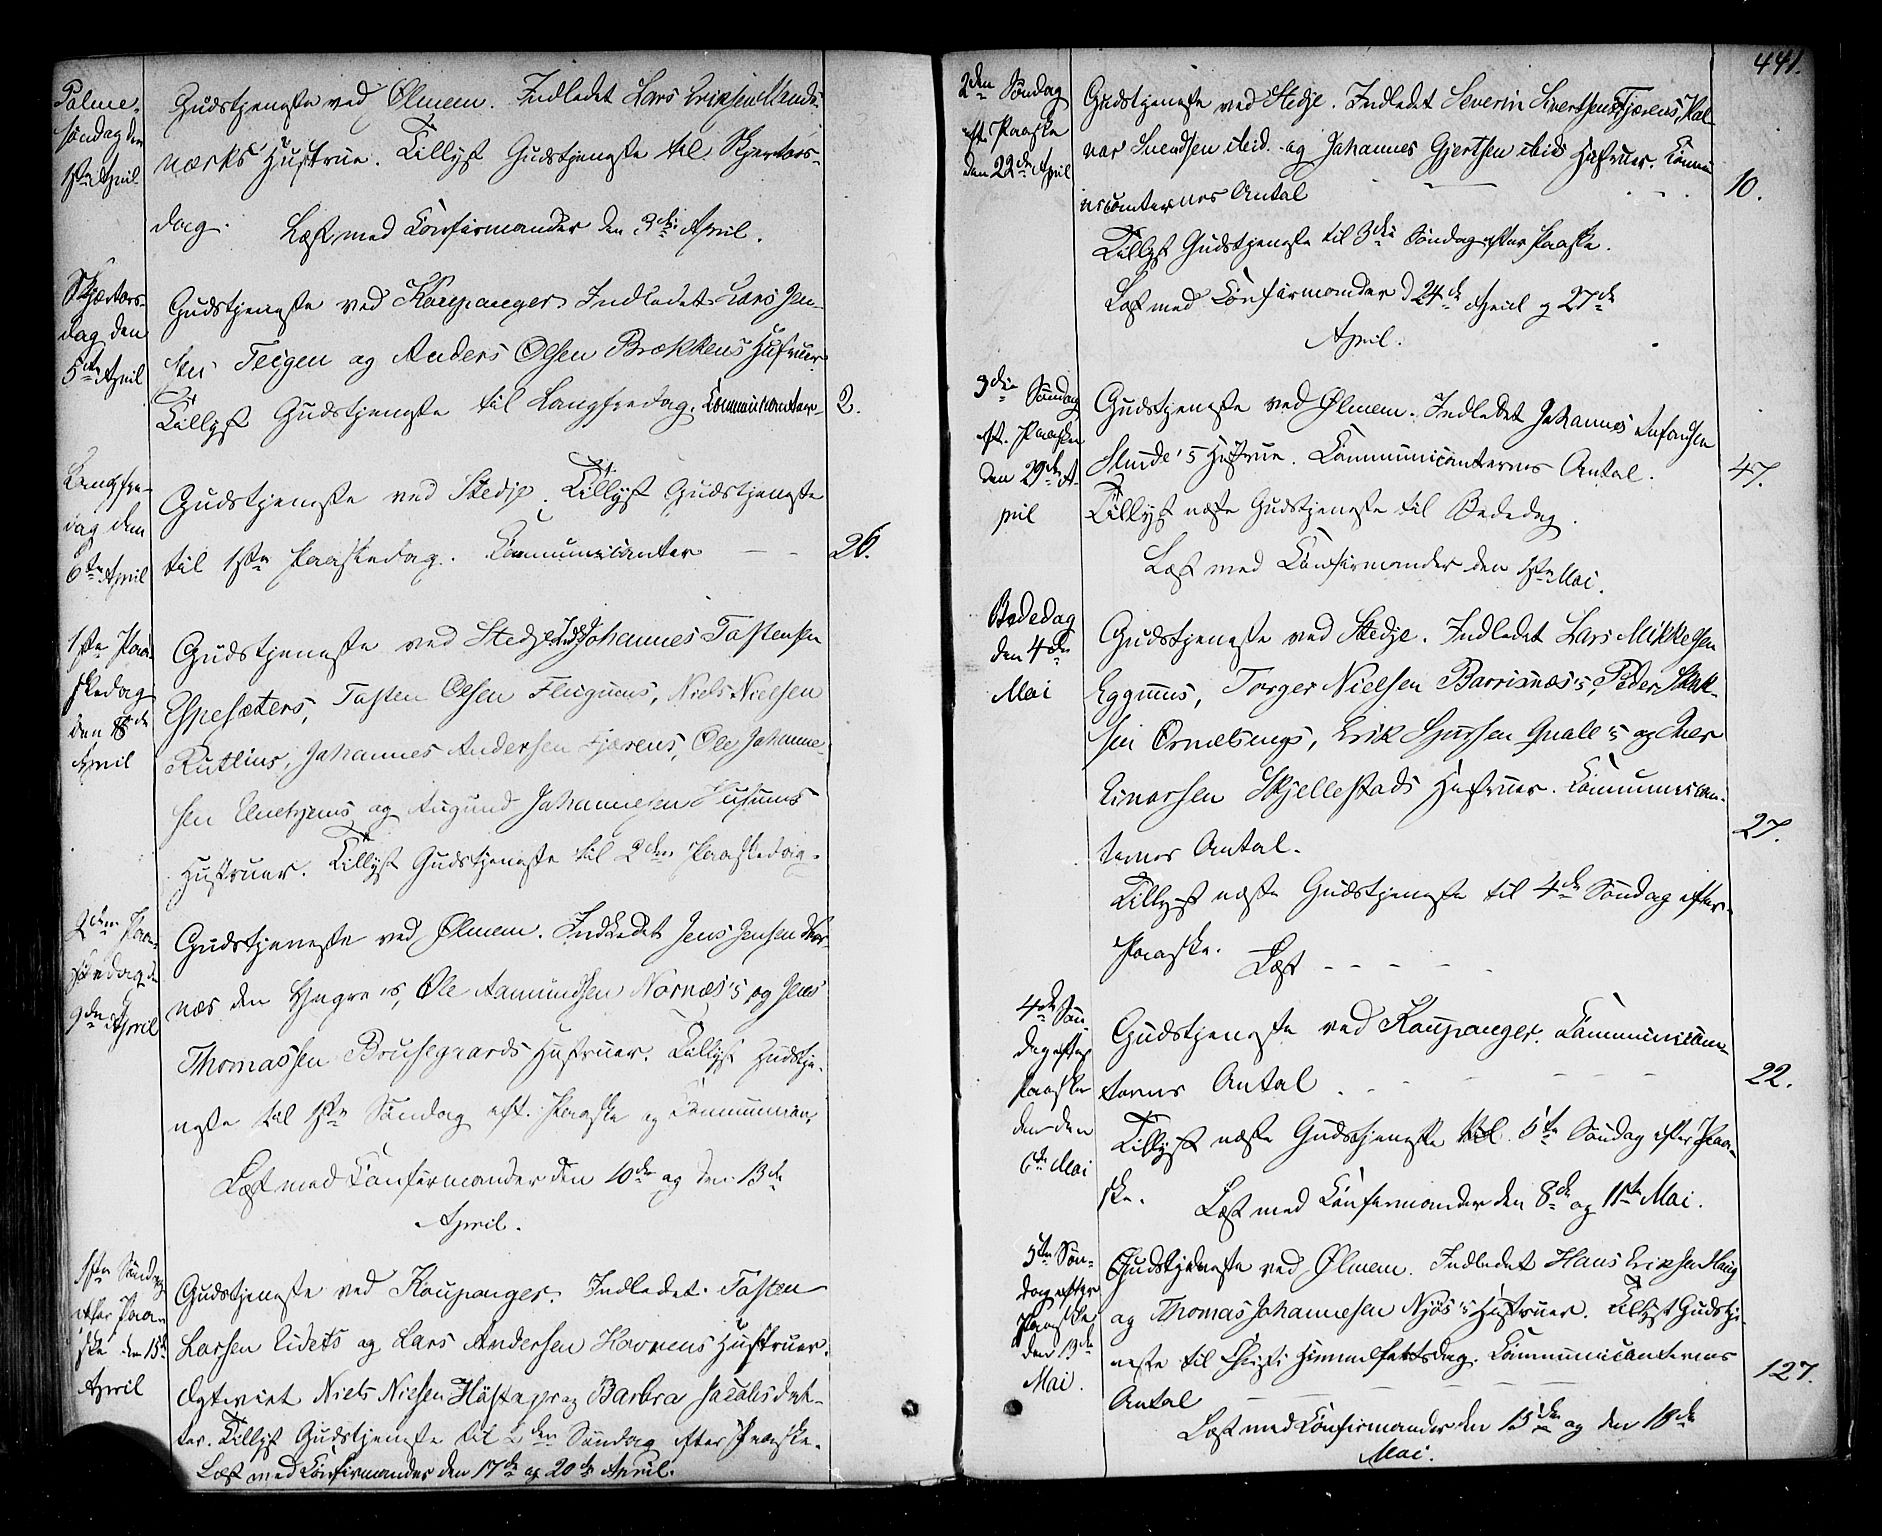 Palme-
søndag den
1ste April
Gudstjeneste ved Ølmem. Indledet Lars Eriksen
værks Hustrue. Tillyst Gudstjeneste til Skjertors-
dag. Læst med Confirmander den 3die April.
Skjærtors-
dag den
5te April
Gudstjeneste ved Kaupanger. Indledet Lars Jen-
sen Teigen og Anders Olsen Brækkens Hustruer
Tillyst Gudstjeneste til Langfredag. Communicanter- 2.
Langfre-
dag den
6te April
Gudstjeneste ved Stedje. Tillyst Gudstjeneste
til 1ste Paaskedag. Communicanter - - 26.
1ste Paa-
skedag
den 8de
April
Gudstjeneste ved Stedje Indl. Johannes Tostensen
Espesæters, Tosten Olsen Flugums, Niels Nielsen
Rutlins, Johannes Andersen Fjærens, Ole Johanne-
sen og Augund Johannesen Husums
Hustruer. Tillyst Gudstjeneste til 2den Paaskedag.
2den Paa-
skedag d.
9de April
Gudstjeneste ved Ølmem. Indledet Jens Jensen Nor-
næs den Yngre's, Ole Aamundsen Nornæs's og Jens
Thomassen Brusegaards Hustruer. Tillyst Gudstje-
neste til 1ste Søndag eft. Paaske og Communican.
Læst med Confirmander den 10de og den 13de
April.
1ste Søndag
efter Paa-
ske den 15de
April
Gudstjeneste ved Kaupanger. Indledet Tosten
Larsen Eidets og Lars Andersen Hovnens Hustruer.
Ægteviet Niels Nielsen og Barbra Jacobsdat-
ter. Tillyst Gudstjeneste til 2den Søndag efter Paaske.
Læst med Confirmander den 17de og 20de April.
441.
2den Søndag
eft. Paaske
den 22de April
Gudstjeneste ved Stedje. Indledet Severin Sivertsens Fjærens,
Svendsen ibid. og Johannes Gjertsen ibid Hustruer. Commu-
nicanternes Antal 10.
Tillyst Gudstjeneste til 3die Søndag efter Paaske.
Læst med Confirmander d 24de April og 27de
April.
3die Søndag
eft. Paaske
den 29de A-
pril
Gudstjeneste ved Ølmem. Indledet Johannes
Slinde's Hustrue. Communicanternes Antal. 47.
Tillyst næste Gudstjeneste til Bededag.
Læst med Confirmander den 1ste Mai.
Bededag
den 4de
Mai
Gudstjeneste ved Stedje. Indledet Lars Mikkelsen
Eggums, Torger Nielsen Barsnæs's, Peder
sen Ornelengs, Erik Sjursen Qvale's og Iver
Einarsen Skjellestads Hustruer. Communican-
ternes Antal. 27.
Tillyst næste Gudstjeneste til 4de Søndag efter
Paaske. Læst - - - - -
4de Søn-
dag efter
Paaske
den den
6te Mai
Gudstjeneste ved Kaupanger. Communican-
ternes Antal - - - - - 22.
Tillyst næste Gudstjeneste til 5te Søndag efter Paa-
ske. Læst med Confirmander den 8de og 11te Mai.
5te Søn-
dag efter
Paaske
den 13de
Mai.
Gudstjeneste ved Ølmem. Indledet Hans Eriksen Haug
og Thomas Johannesen Njøs's Hustruer. Tillyst Gudstje-
neste til Christi Himmelfartsdag. Communicanternes
Antal - - - - - 127.
Læst med Confirmander den 15de og den 18de
Mai.